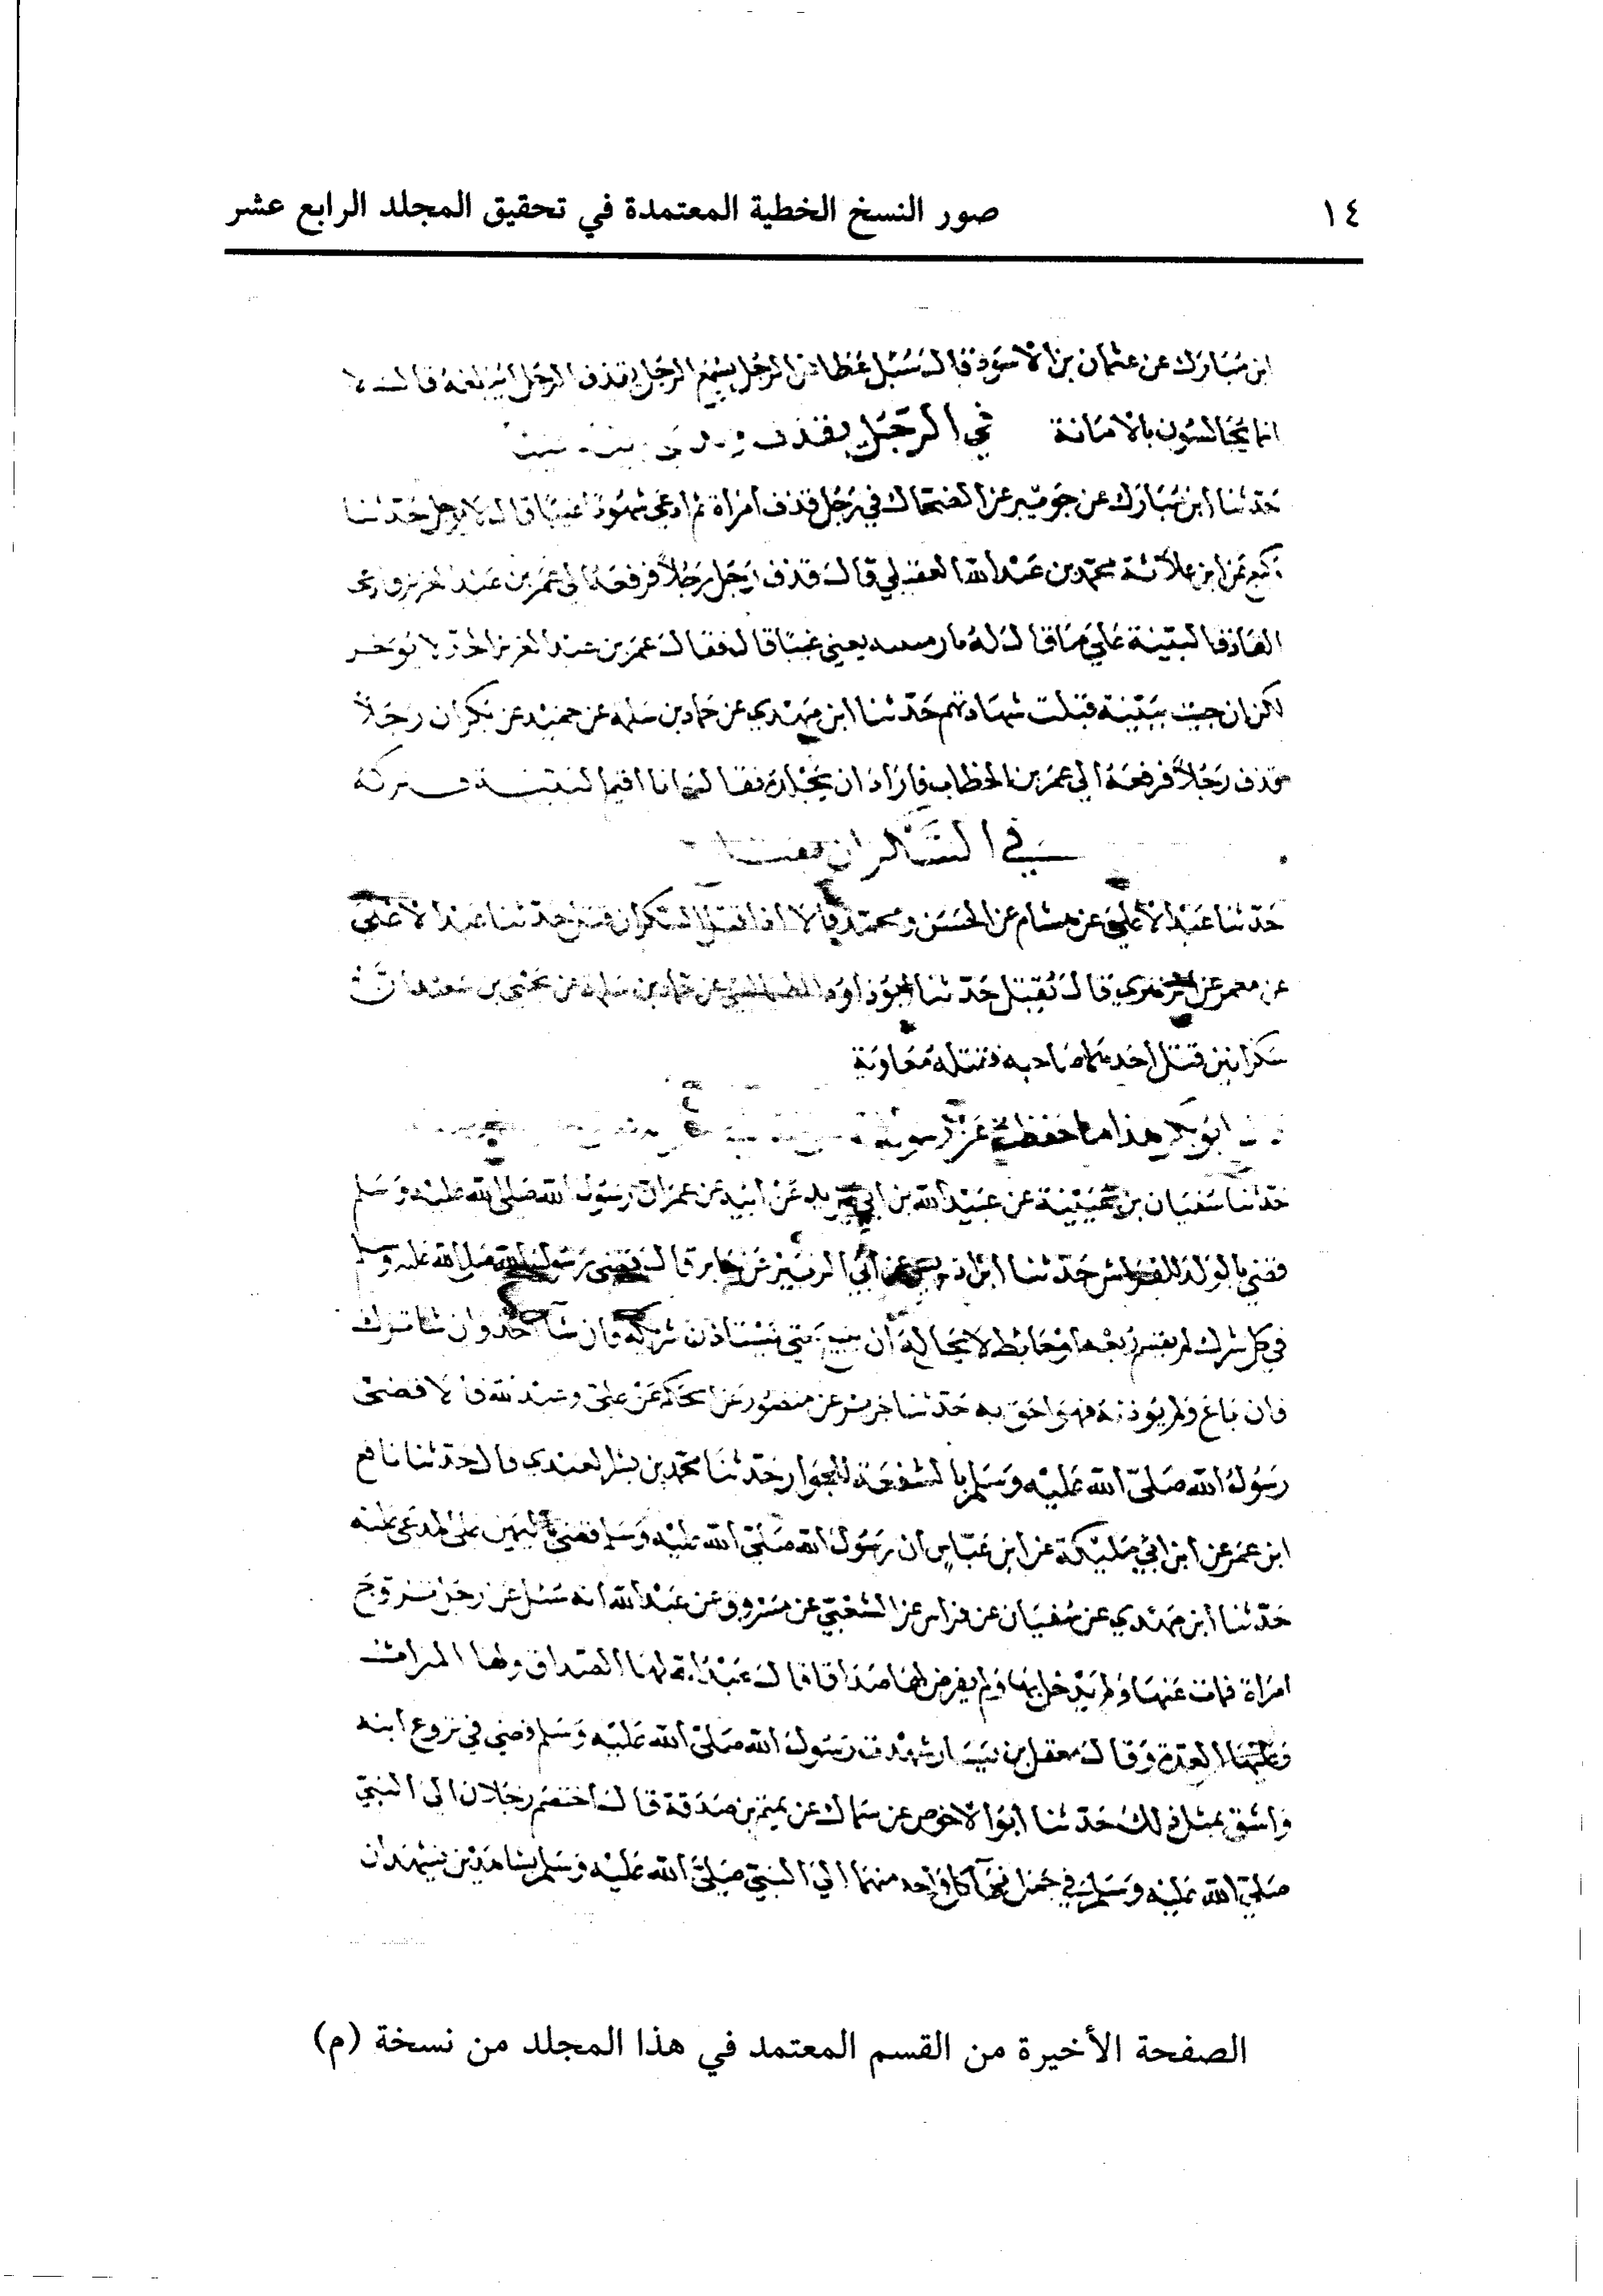 ١٤ صور النسخ الخطية المعتمدة في تحقيق المجلد الرابع عشر
ابن مبارك عن عثمان بن الاسود قال سئل عطا عن الرجل يسمع الرجل يقذف الرجل ايبلغه قال لا
انما يتجالسون بالامانة في الرجل يقذف
حدثنا ابن مبارك عن جويبر عن الضحاك في رجل قذف امراة ثم ادعى شهودا غيبا قال لا يوجل حدثنا
وكيع عن ابن علاثة محمد بن عبد الله العقيلي قال قذف رجل رجلا فرفعه الى عمر بن عبد العزيز وادعى
القاذف البينة على ما قال له يعني غيبا قال فقال عمر بن عبد العزيز الحد لا يوخر
لكن ان جيت ببينة قبلت شهادتهم حدثنا ابن مهدي عن حماد بن سلمة عن حميد عن بكر ان رجلا
قذف رجلا فرفعه الى عمر بن الخطاب فاراد ان يجلده فقال انا اقيم البينة فتركه
في السكران يقتل
حدثنا عبد الاعلى عن هشام عن الحسن ومحمد قالا اذا قتل السكران قتل حدثنا عبد الاعلى
عن معمر عن الزهري قال يقتل حدثنا ابو داود الطيالسي عن حماد بن سلمة عن يحيى بن سعيد ان
سكرانين قتل احدهما صاحبه فقتله معاوية
ابو بكر هذا ما حفظت عن رسول
حدثنا سفيان بن عيينة عن عبيد الله بن ابي يزيد عن ابيه عن عمر ان رسول الله صلى الله عليه وسلم
قضى بالولد للفراش حدثنا ابن ادريس عن ابي الزبير عن جابر قال قضى رسول الله صلى الله عليه وسلم
في كل شرك لم يقسم ربعة او حائط لا يحل له ان يبيع حتى يستاذن شريكه فان شا اخذ وان شا ترك
فان باع ولم يوذنه فهو احق به حدثنا جرير عن منصور عن الحكم عن علي وعبد الله قالا قضى
رسول الله صلى الله عليه وسلم بالشفعة للجوار حدثنا محمد بن بشر العبدي قال حدثنا نافع
ابن عمر عن ابن ابي مليكة عن ابن عباس ان رسول الله صلى الله عليه وسلم قضى باليمين على المدعى عليه
حدثنا ابن مهدي عن سفيان عن فراس عن الشعبي عن مسروق عن عبد الله انه سئل عن رجل تزوج
امراة فمات عنها ولم يدخل بها ولم يفرض لها صداقا قال عبد الله لها الصداق ولها الميراث
وعليها العدة وقال معقل بن يسار شهدت رسول الله صلى الله عليه وسلم قضى في بروع ابنة
واشق بمثل ذلك حدثنا ابو الاحوص عن سماك عن تميم بن صدقة قال اختصم رجلان الى النبي
صلى الله عليه وسلم في جمل فجا كل واحد منهما الى النبي صلى الله عليه وسلم بشاهدين يشهدان
الصفحة الأخيرة من القسم المعتمد في هذا المجلد من نسخة (م)